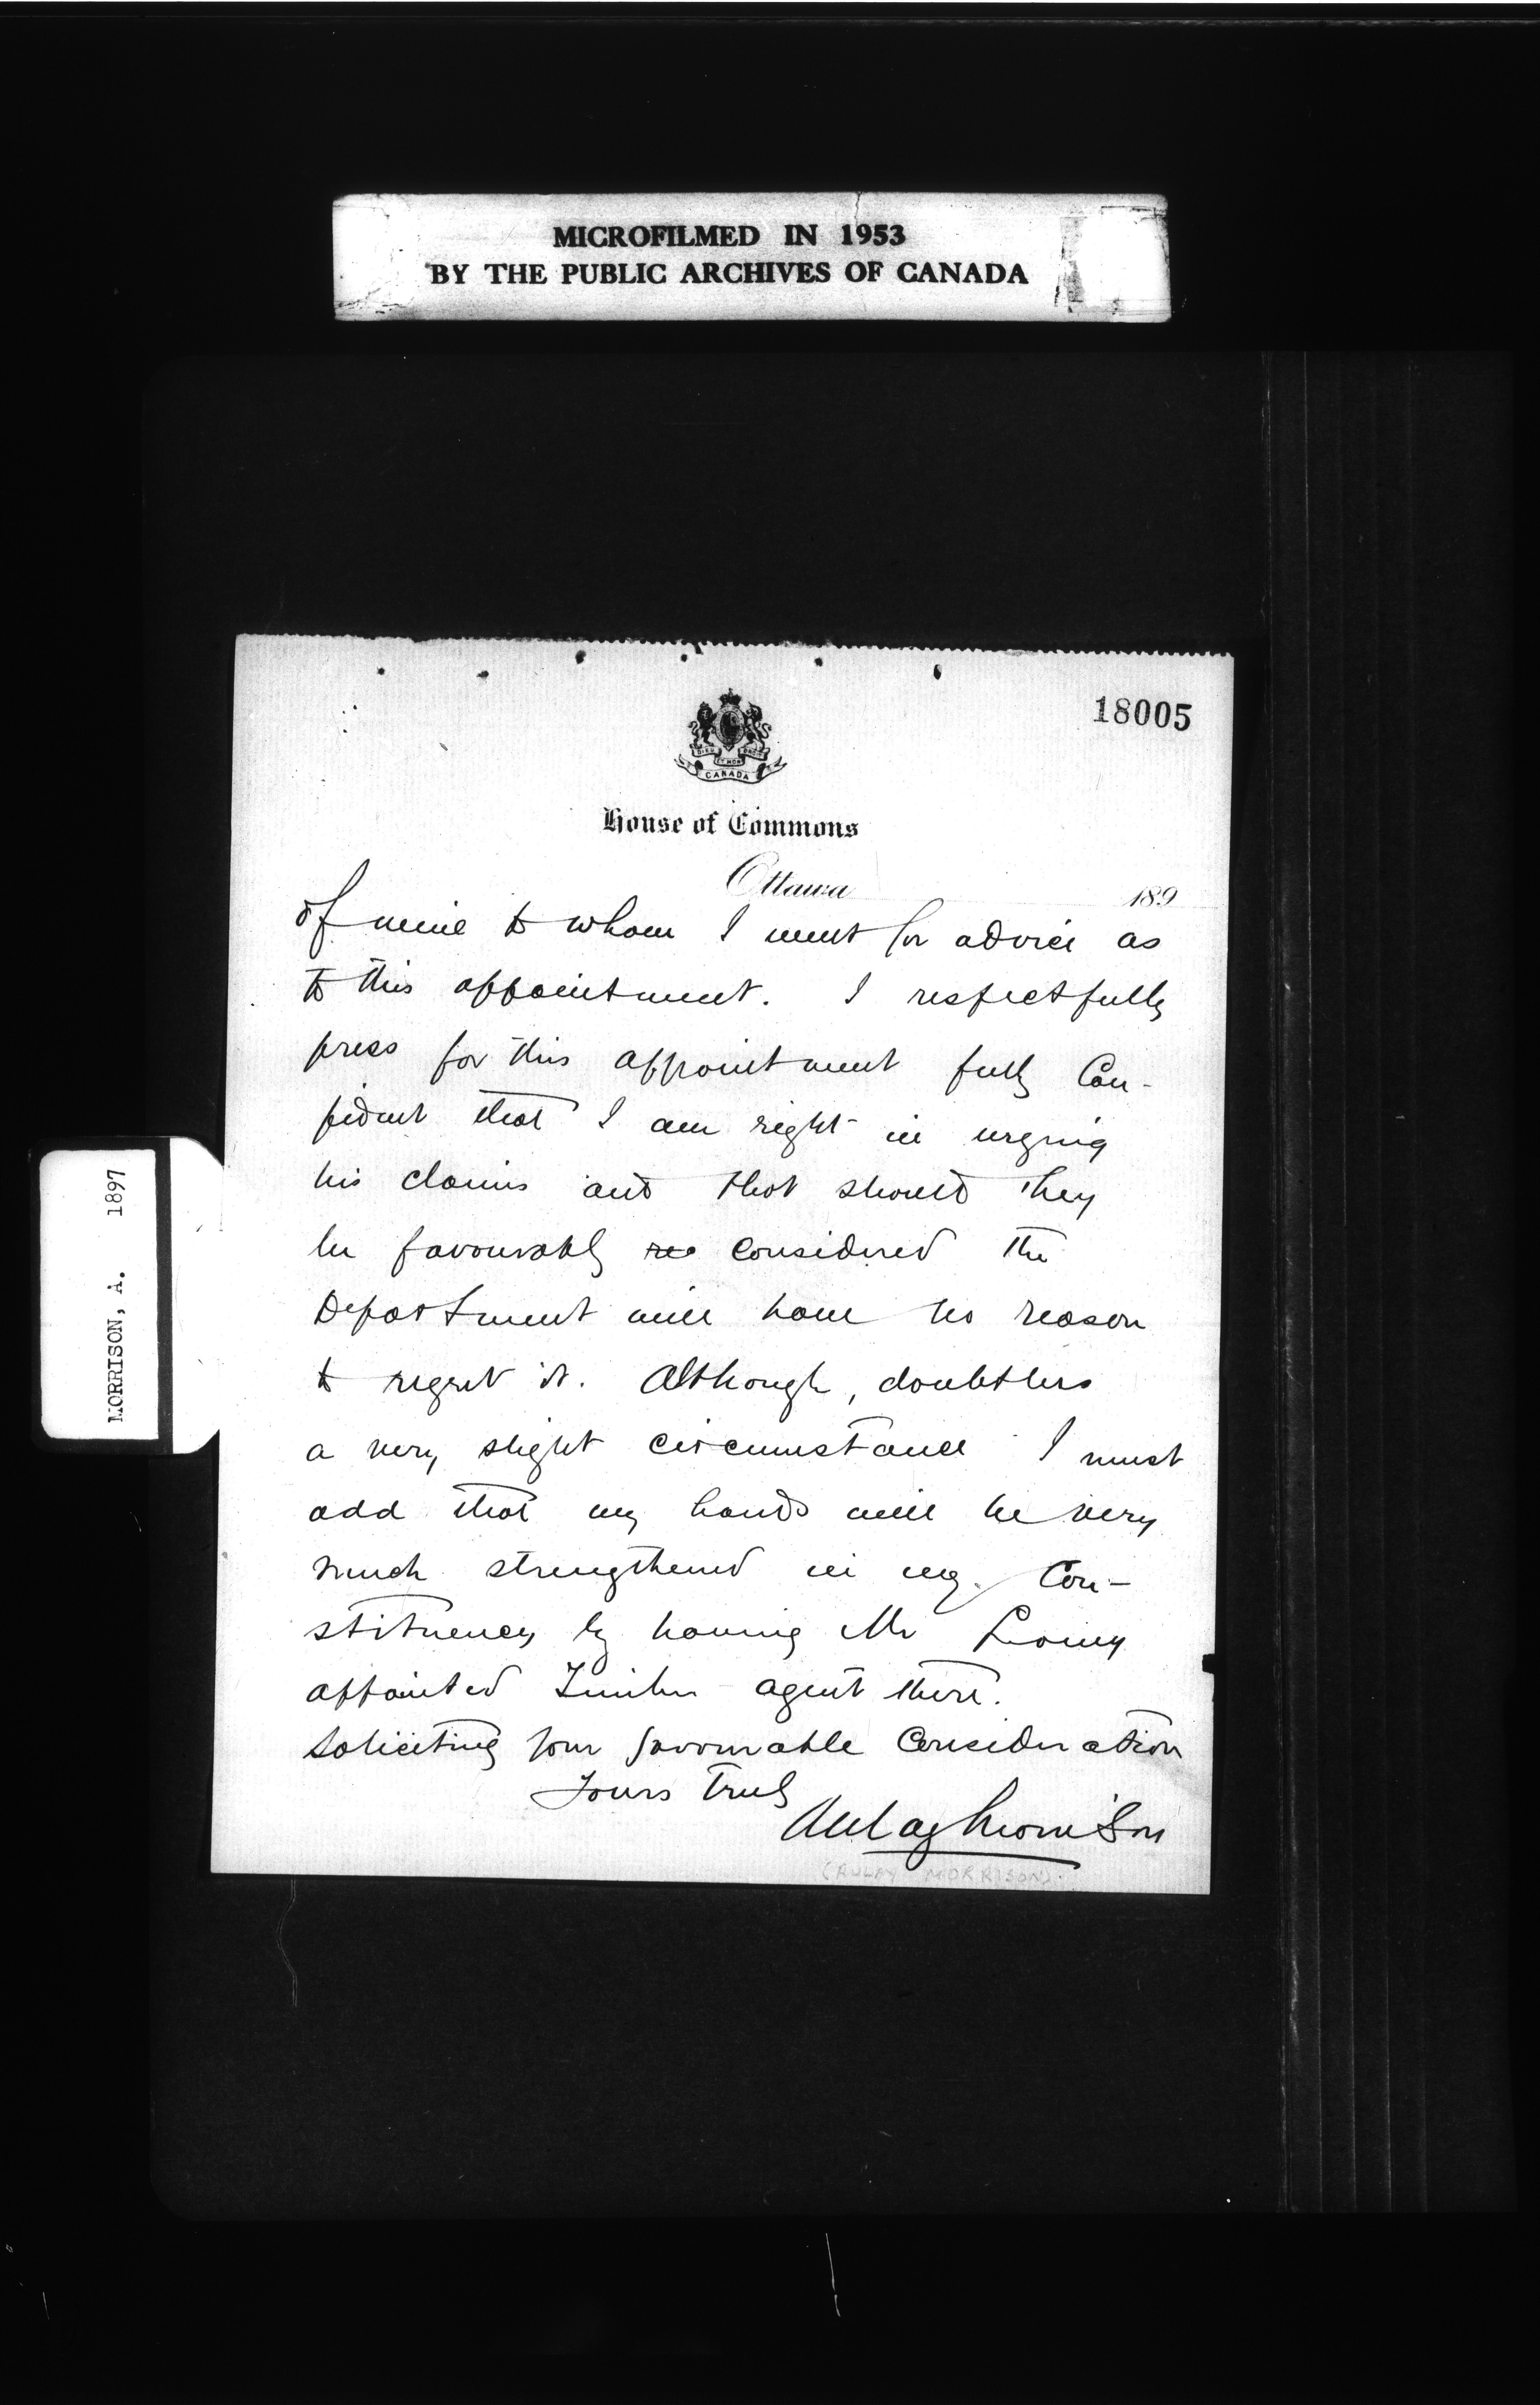 MICROFILMED IN 1953
BY THE PUBLIC ARCHIVES OF CANADA
18005
CANADA
House of Commons
Ottawa 189
of mine to whom I went for advice as
to this appointment. I respectfully
press for this appointment fully Con-
fident that I am right in urging
his claims and that should they
be favourably considered the
Department will have no reason
to regret it. Although, doubtless
a very slight circumstance I must
add that my hands will be very
much strengthened in my Con-
stituency by having Mr
appointed Timber agent there.
Soliciting your favourable Consideration
Yours Truly
Aulay Morrison
(AULAY MORRISON).
MORRISON, A. 1897